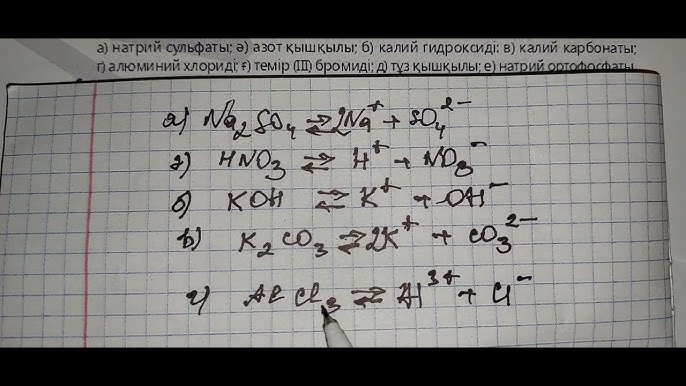 а) натрий сульфаты; ә) азот қышқылы; б) калий гидроксиді: в) калий карбонаты;
г) алюминий хлориді; ғ) темір (III) бромиді; д) тұз қышқылы; е) натрий ортофосфаты
а) Na₂SO₄ ⇄ 2Na⁺ + SO₄²⁻
ә) HNO₃ ⇄ H⁺ + NO₃⁻
б) KOH ⇄ K⁺ + OH⁻
в) K₂CO₃ ⇄ 2K⁺ + CO₃²⁻
г) AlCl₃ ⇄ Al³⁺ + Cl⁻